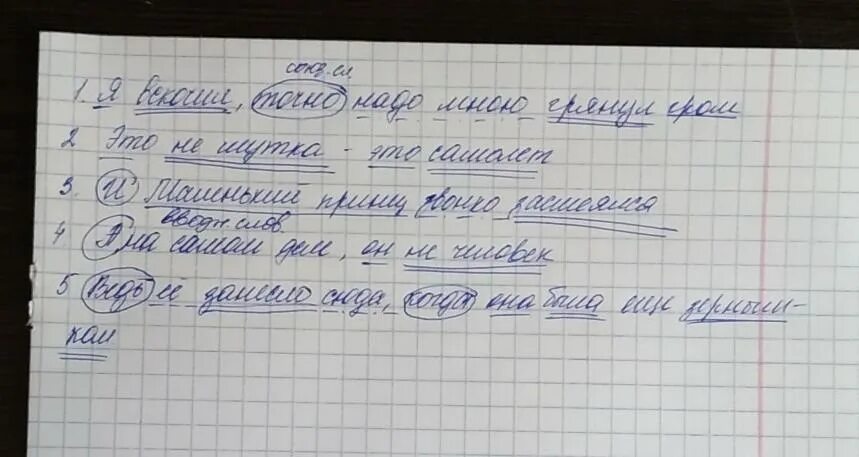 союз.сл.
1. Я вскочил, точно надо мною грянул гром
2 Это не шутка - это самолет
3. И Маленький принц звонко засмеялся
вводн. слов.
4 А на самом деле, он не человек
5 Ведь её занесло сюда, когда она была еще зерныш-
ком